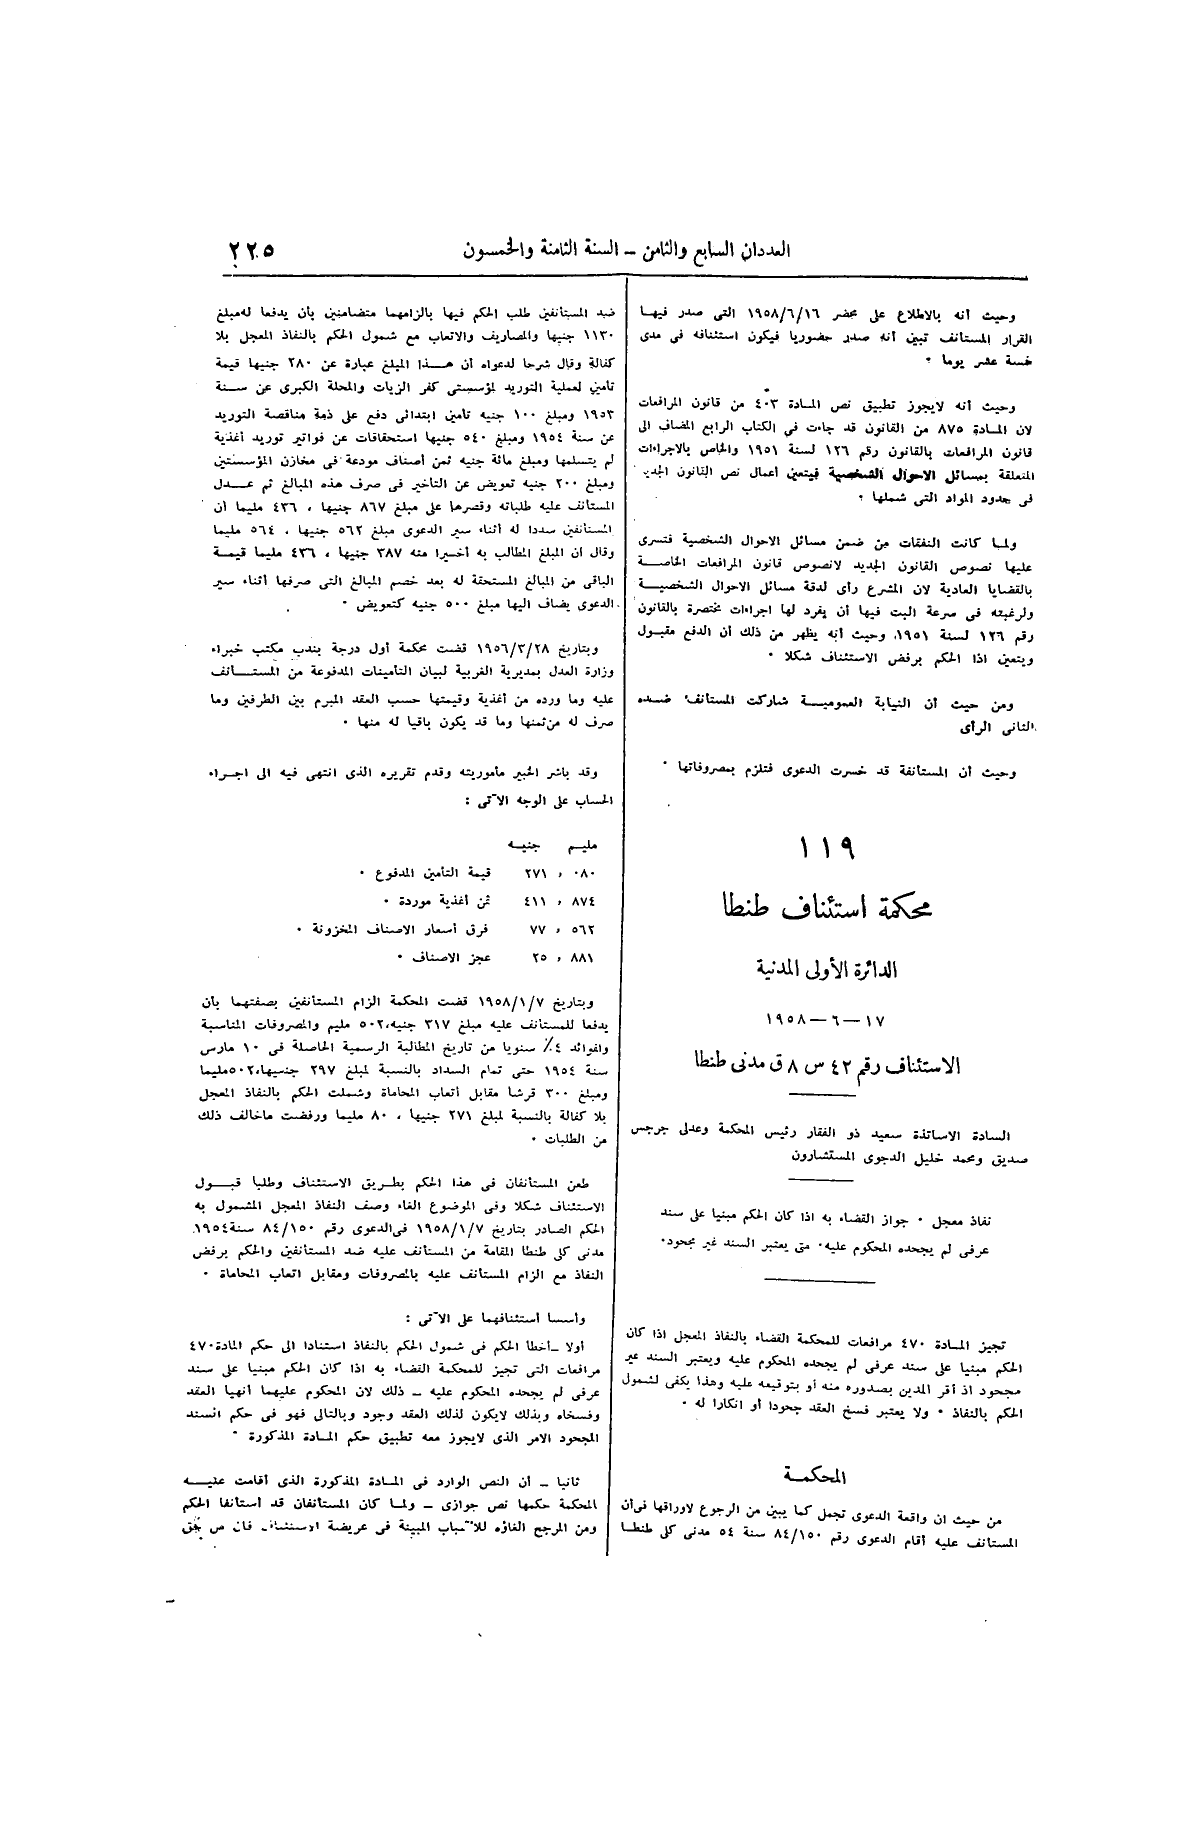 العددان السابع والثامن – السنة الثامنة والخمسون
٢٢٥
وحيث أنه بالاطلاع على محضر ١٩٥٨/٦/١٦ التى صدر فيها
القرار المستأنف تبين أنه صدر حضوريا فيكون استئنافه فى مدى
خمسة عشر يوما ٠
وحيث أنه لايجوز تطبيق نص المادة ٤٠٣ من قانون المرافعات
لان المادة ٨٧٥ من القانون قد جاءت فى الكتاب الرابع المضاف الى
قانون المرافعات بالقانون رقم ١٢٦ لسنة ١٩٥١ والخاص بالاجراءات
المتعلقة بمسائل الاحوال الشخصية فيتعين أعمال نص القانون الجديد
فى حدود المواد التى شملها ٠
ولما كانت النفقات من ضمن مسائل الاحوال الشخصية فتسرى
عليها نصوص القانون الجديد لانصوص قانون المرافعات الخاصة
بالقضايا العادية لان المشرع رأى لدقة مسائل الاحوال الشخصية
ولرغبته فى سرعة البت فيها أن يفرد لها اجراءات مختصرة بالقانون
رقم ١٢٦ لسنة ١٩٥١، وحيث أنه يظهر من ذلك أن الدفع مقبول
ويتعين اذا الحكم برفض الاستئناف شكلا ٠
ومن حيث أن النيابة العمومية شاركت المستأنف ضده
الثانى الرأى
وحيث أن المستأنفة قد خسرت الدعوى فتلزم بمصروفاتها ٠
١١٩
محكمة استئناف طنطا
الدائرة الأولى المدنية
١٧ – ٦ – ١٩٥٨
الاستئناف رقم ٤٢ س ٨ ق مدنى طنطا
السادة الاساتذة سعيد ذو الفقار رئيس المحكمة وعدلى جرجس
صديق ومحمد خليل الدجوى المستشارون
نفاذ معجل ٠ جواز القضاء به اذا كان الحكم مبنيا على سند
عرفى لم يجحده المحكوم عليه٠ متى يعتبر السند غير مجحود٠
تجيز المادة ٤٧٠ مرافعات للمحكمة القضاء بالنفاذ المعجل اذا كان
الحكم مبنيا على سند عرفى لم يجحده المحكوم عليه ويعتبر السند غير
مجحود اذ أقر المدين بصدوره منه أو بتوقيعه عليه وهذا يكفى لشمول
الحكم بالنفاذ ٠ ولا يعتبر فسخ العقد جحودا أو انكارا له ٠
المحكمة
من حيث ان واقعة الدعوى تجمل كما يبين من الرجوع لاوراقها فى أن
المستأنف عليه أقام الدعوى رقم ٨٤/١٥٠ سنة ٥٤ مدنى كلى طنطا
ضد المستأنفين طلب الحكم فيها بالزامهما متضامنين بأن يدفعا له مبلغ
١١٣٠ جنيها والمصاريف والاتعاب مع شمول الحكم بالنفاذ المعجل بلا
كفالة وقال شرحا لدعواه أن هذا المبلغ عبارة عن ٢٨٠ جنيها قيمة
تأمين لعملية التوريد لمؤسستى كفر الزيات والمحلة الكبرى عن سنة
١٩٥٣ ومبلغ ١٠٠ جنيه تأمين ابتدائى دفع على ذمة مناقصة التوريد
عن سنة ١٩٥٤ ومبلغ ٥٤٠ جنيها استحقاقات عن فواتير توريد أغذية
لم يتسلمها ومبلغ مائة جنيه ثمن أصناف مودعة فى مخازن المؤسستين
ومبلغ ٢٠٠ جنيه تعويض عن التأخير فى صرف هذه المبالغ ثم عدل
المستأنف عليه طلباته وقصرها على مبلغ ٨٦٧ جنيها ، ٤٣٦ مليما أن
المستأنفين سددا له أثناء سير الدعوى مبلغ ٥٦٢ جنيها ، ٥٦٤ مليما
وقال ان المبلغ المطالب به أخيرا منه ٣٨٧ جنيها ، ٤٣٦ مليما قيمة
الباقى من المبالغ المستحقة له بعد خصم المبالغ التى صرفها أثناء سير
الدعوى يضاف اليها مبلغ ٥٠٠ جنيه كتعويض ٠
وبتاريخ ١٩٥٦/٣/٢٨ قضت محكمة أول درجة بندب مكتب خبراء
وزارة العدل بمديرية الغربية لبيان التأمينات المدفوعة من المستأنف
عليه وما ورده من أغذية وقيمتها حسب العقد المبرم بين الطرفين وما
صرف له من ثمنها وما قد يكون باقيا له منها ٠
وقد باشر الخبير مأموريته وقدم تقريره الذى انتهى فيه الى اجراء
الحساب على الوجه الآتى :
مليم جنيه
٠٨٠ ، ٢٧١ قيمة التأمين المدفوع ٠
٨٧٤ ، ٤١١ ثمن أغذية موردة ٠
٥٦٢ ، ٧٧ فرق أسعار الاصناف المخزونة ٠
٨٨١ ، ٢٥ عجز الاصناف ٠
وبتاريخ ١٩٥٨/١/٧ قضت المحكمة الزام المستأنفين بصفتهما بأن
يدفعا للمستأنف عليه مبلغ ٣١٧ جنيه،٥٠٢ مليم والمصروفات المناسبة
وافوائد ٤٪ سنويا من تاريخ المطالبة الرسمية الحاصلة فى ١٠ مارس
سنة ١٩٥٤ حتى تمام السداد بالنسبة لمبلغ ٢٩٧ جنسيها،٥٠٢مليما
ومبلغ ٣٠٠ قرشا مقابل أتعاب المحاماة وشملت الحكم بالنفاذ المعجل
بلا كفالة بالنسبة لمبلغ ٢٧١ جنيها ، ٨٠ مليما ورفضت ماخالف ذلك
من الطلبات ٠
طعن المستأنفان فى هذا الحكم بطريق الاستئناف وطلبا قبول
الاستئناف شكلا وفى الموضوع الغاء وصف النفاذ المعجل المشمول به
الحكم الصادر بتاريخ ١٩٥٨/١/٧ فى الدعوى رقم ٨٤/١٥٠ سنة١٩٥٤
مدنى كلى طنطا المقامة من المستأنف عليه ضد المستأنفين والحكم برفض
النفاذ مع الزام المستأنف عليه بالمصروفات ومقابل اتعاب المحاماة ٠
وأسسا استئنافهما على الآتى :
أولا –أخطأ الحكم فى شمول الحكم بالنفاذ استنادا الى حكم المادة٤٧٠
مرافعات التى تجيز للمحكمة القضاء به اذا كان الحكم مبنيا على سند
عرفى لم يجحده المحكوم عليه – ذلك لان المحكوم عليهما أنهيا العقد
وفسخاه وبذلك لايكون لذلك العقد وجود وبالتالى فهو فى حكم السند
المجحود الامر الذى لايجوز معه تطبيق حكم المادة المذكورة ٠
ثانيا – أن النص الوارد فى المادة المذكورة الذى أقامت عليه
المحكمة حكمها نص جوازى – ولما كان المستأنفان قد استأنفا الحكم
ومن المرجح الغاؤه للأسباب المبينة فى عريضة الاستئناف فان من حق